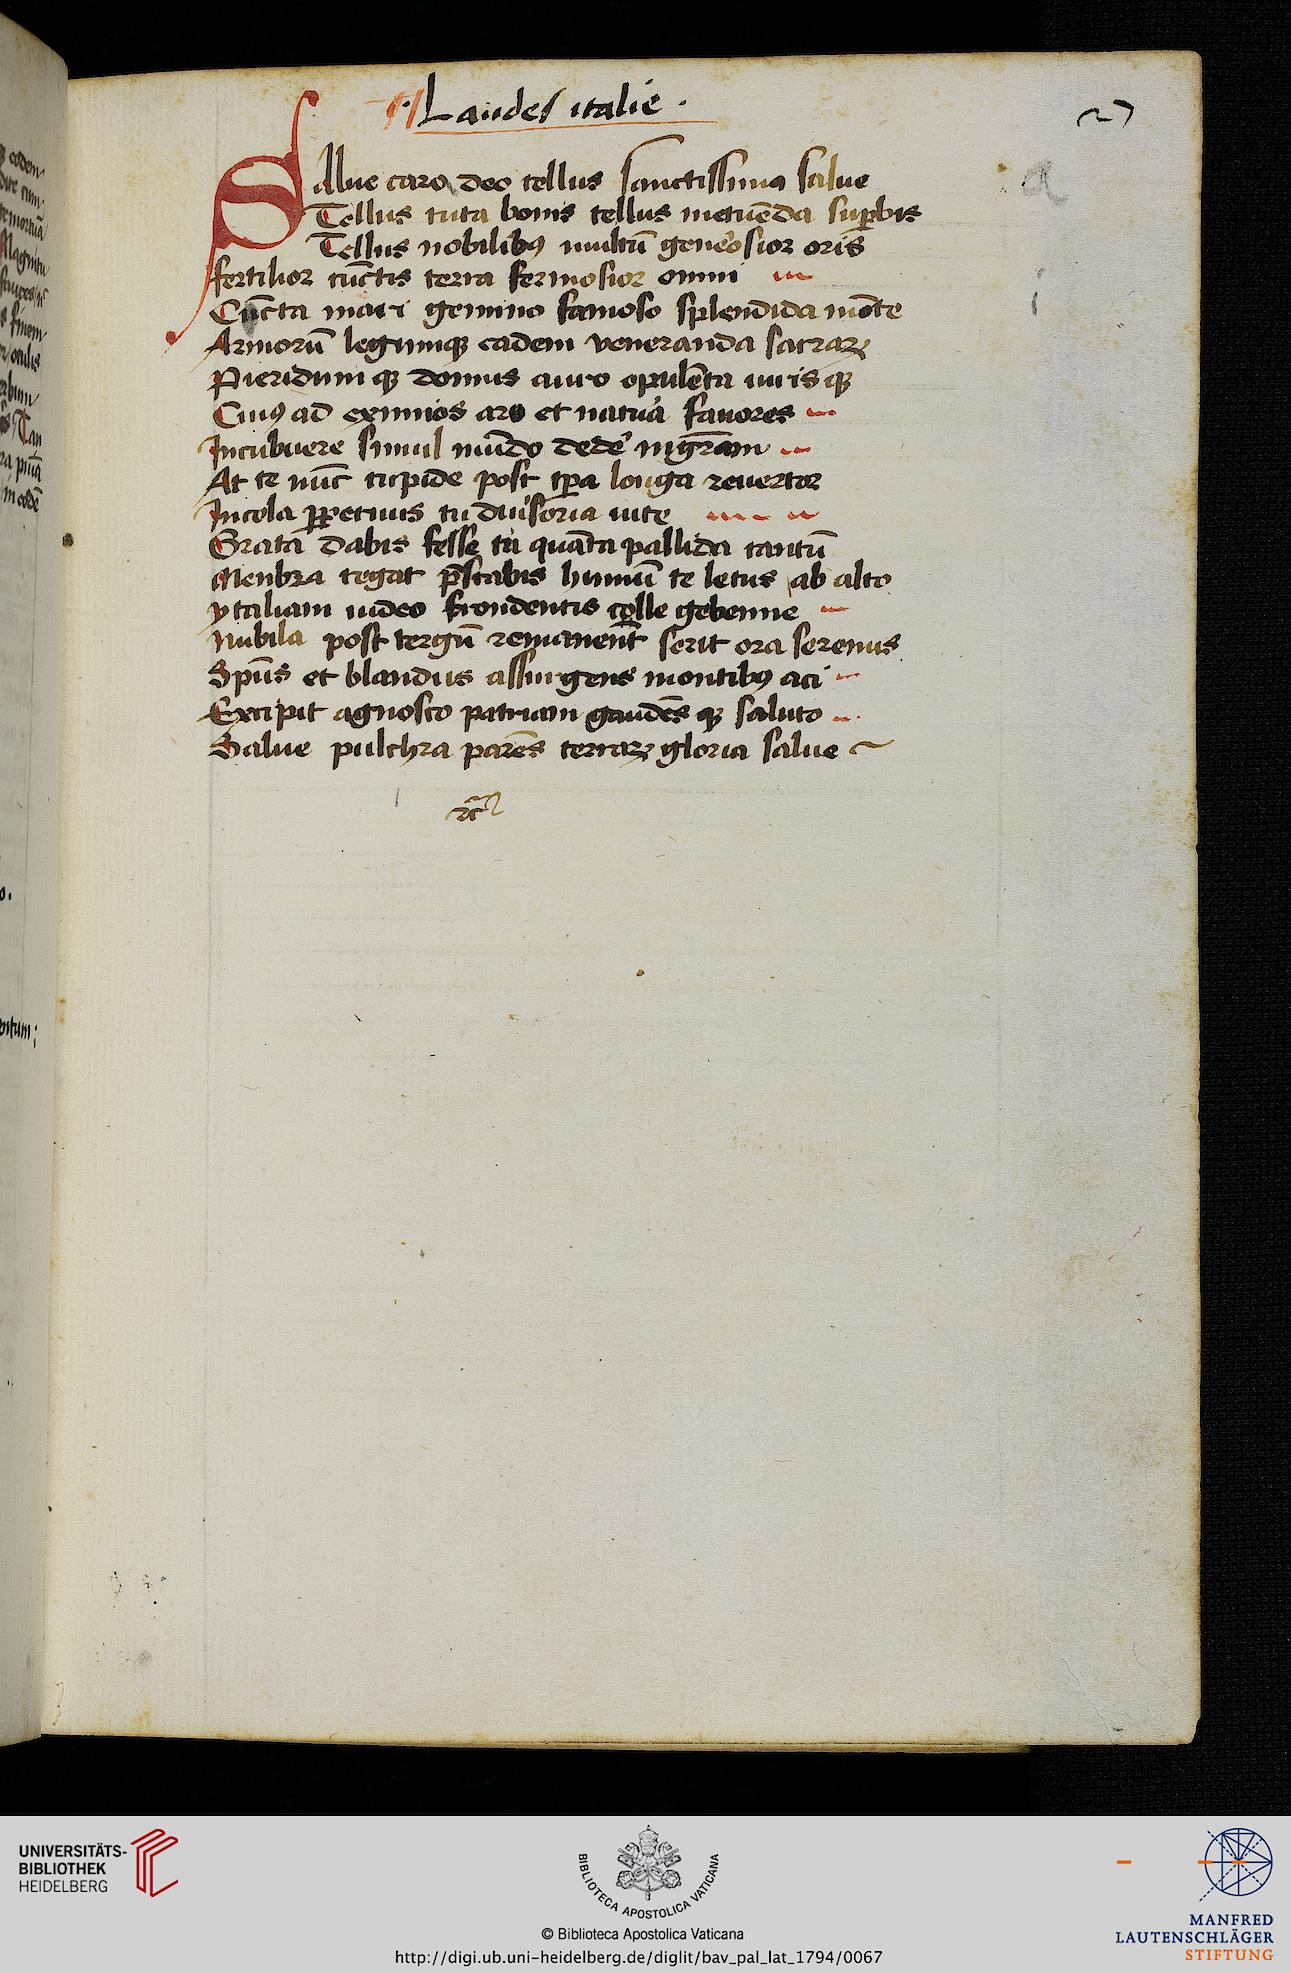 Laudes italie .
27
Salue cara deo tellus sanctissima salue
Tellus tuta bonis tellus metuēda suꝑbis
Tellus nobilibꝯ multū gen̄osior oris
fertilior cūctis terra formosior omni
Cūcta mari gemino famoso splendida mōte
Armorū legumqꝫ eadem veneranda sacraꝝ
Pieridum qꝫ domus auro opulēta uirisqꝫ
Cuiꝯ ad eximios ars et natura fauores
Incubuere simul mūdo dedē mgr̄am
At te nūc cupide post tꝑa longa reuertor
Incola ꝑpetuus tu diuersoria uite
Grata dabis fesse tu quāta pallida tantū
Menbra tegat p̄stabis humū te letus ab alto
ytaliam uideo frondentis colle gebenne
Nubila post tergū remanent̄ ferit ora serenus
Spūs et blandus assurgens montibꝯ aci
Excipit agnosco patriam gaudēs qꝫ saluto
Salue pulchra parēs terraꝝ gloria salue
rc̄
a
i
eodem
Magnitu
finem
oculis
Tan
entum;
UNIVERSITÄTS-
BIBLIOTHEK
HEIDELBERG
BIBLIOTECA APOSTOLICA VATICANA
© Biblioteca Apostolica Vaticana
http://digi.ub.uni-heidelberg.de/diglit/bav_pal_lat_1794/0067
MANFRED
LAUTENSCHLÄGER
STIFTUNG